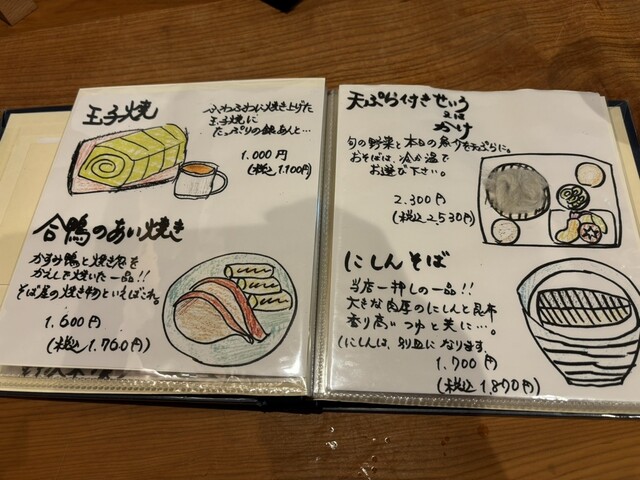 玉子焼
ふわふわに焼き上げた
玉子焼に
たっぷりの銀あんと…
1.000円
(税込1.100円)
合鴨のあい焼き
かすみ鴨と焼き葱を
かえしで焼いた一品!!
そば屋の焼き物といえばこれ。
1.600円
(税込1.760円)
天ぷら付きせいろ
又は
かけ
旬の野菜と本日の魚介を天ぷらに。
おそばは、冷か温で
お選び下さい。
2.300円
(税込2.530円)
にしんそば
当店一押しの一品!!
大きな肉厚のにしんと昆布
香り高いつゆと共に…。
(にしんは、別皿になります。
1.700円
(税込1.870円)